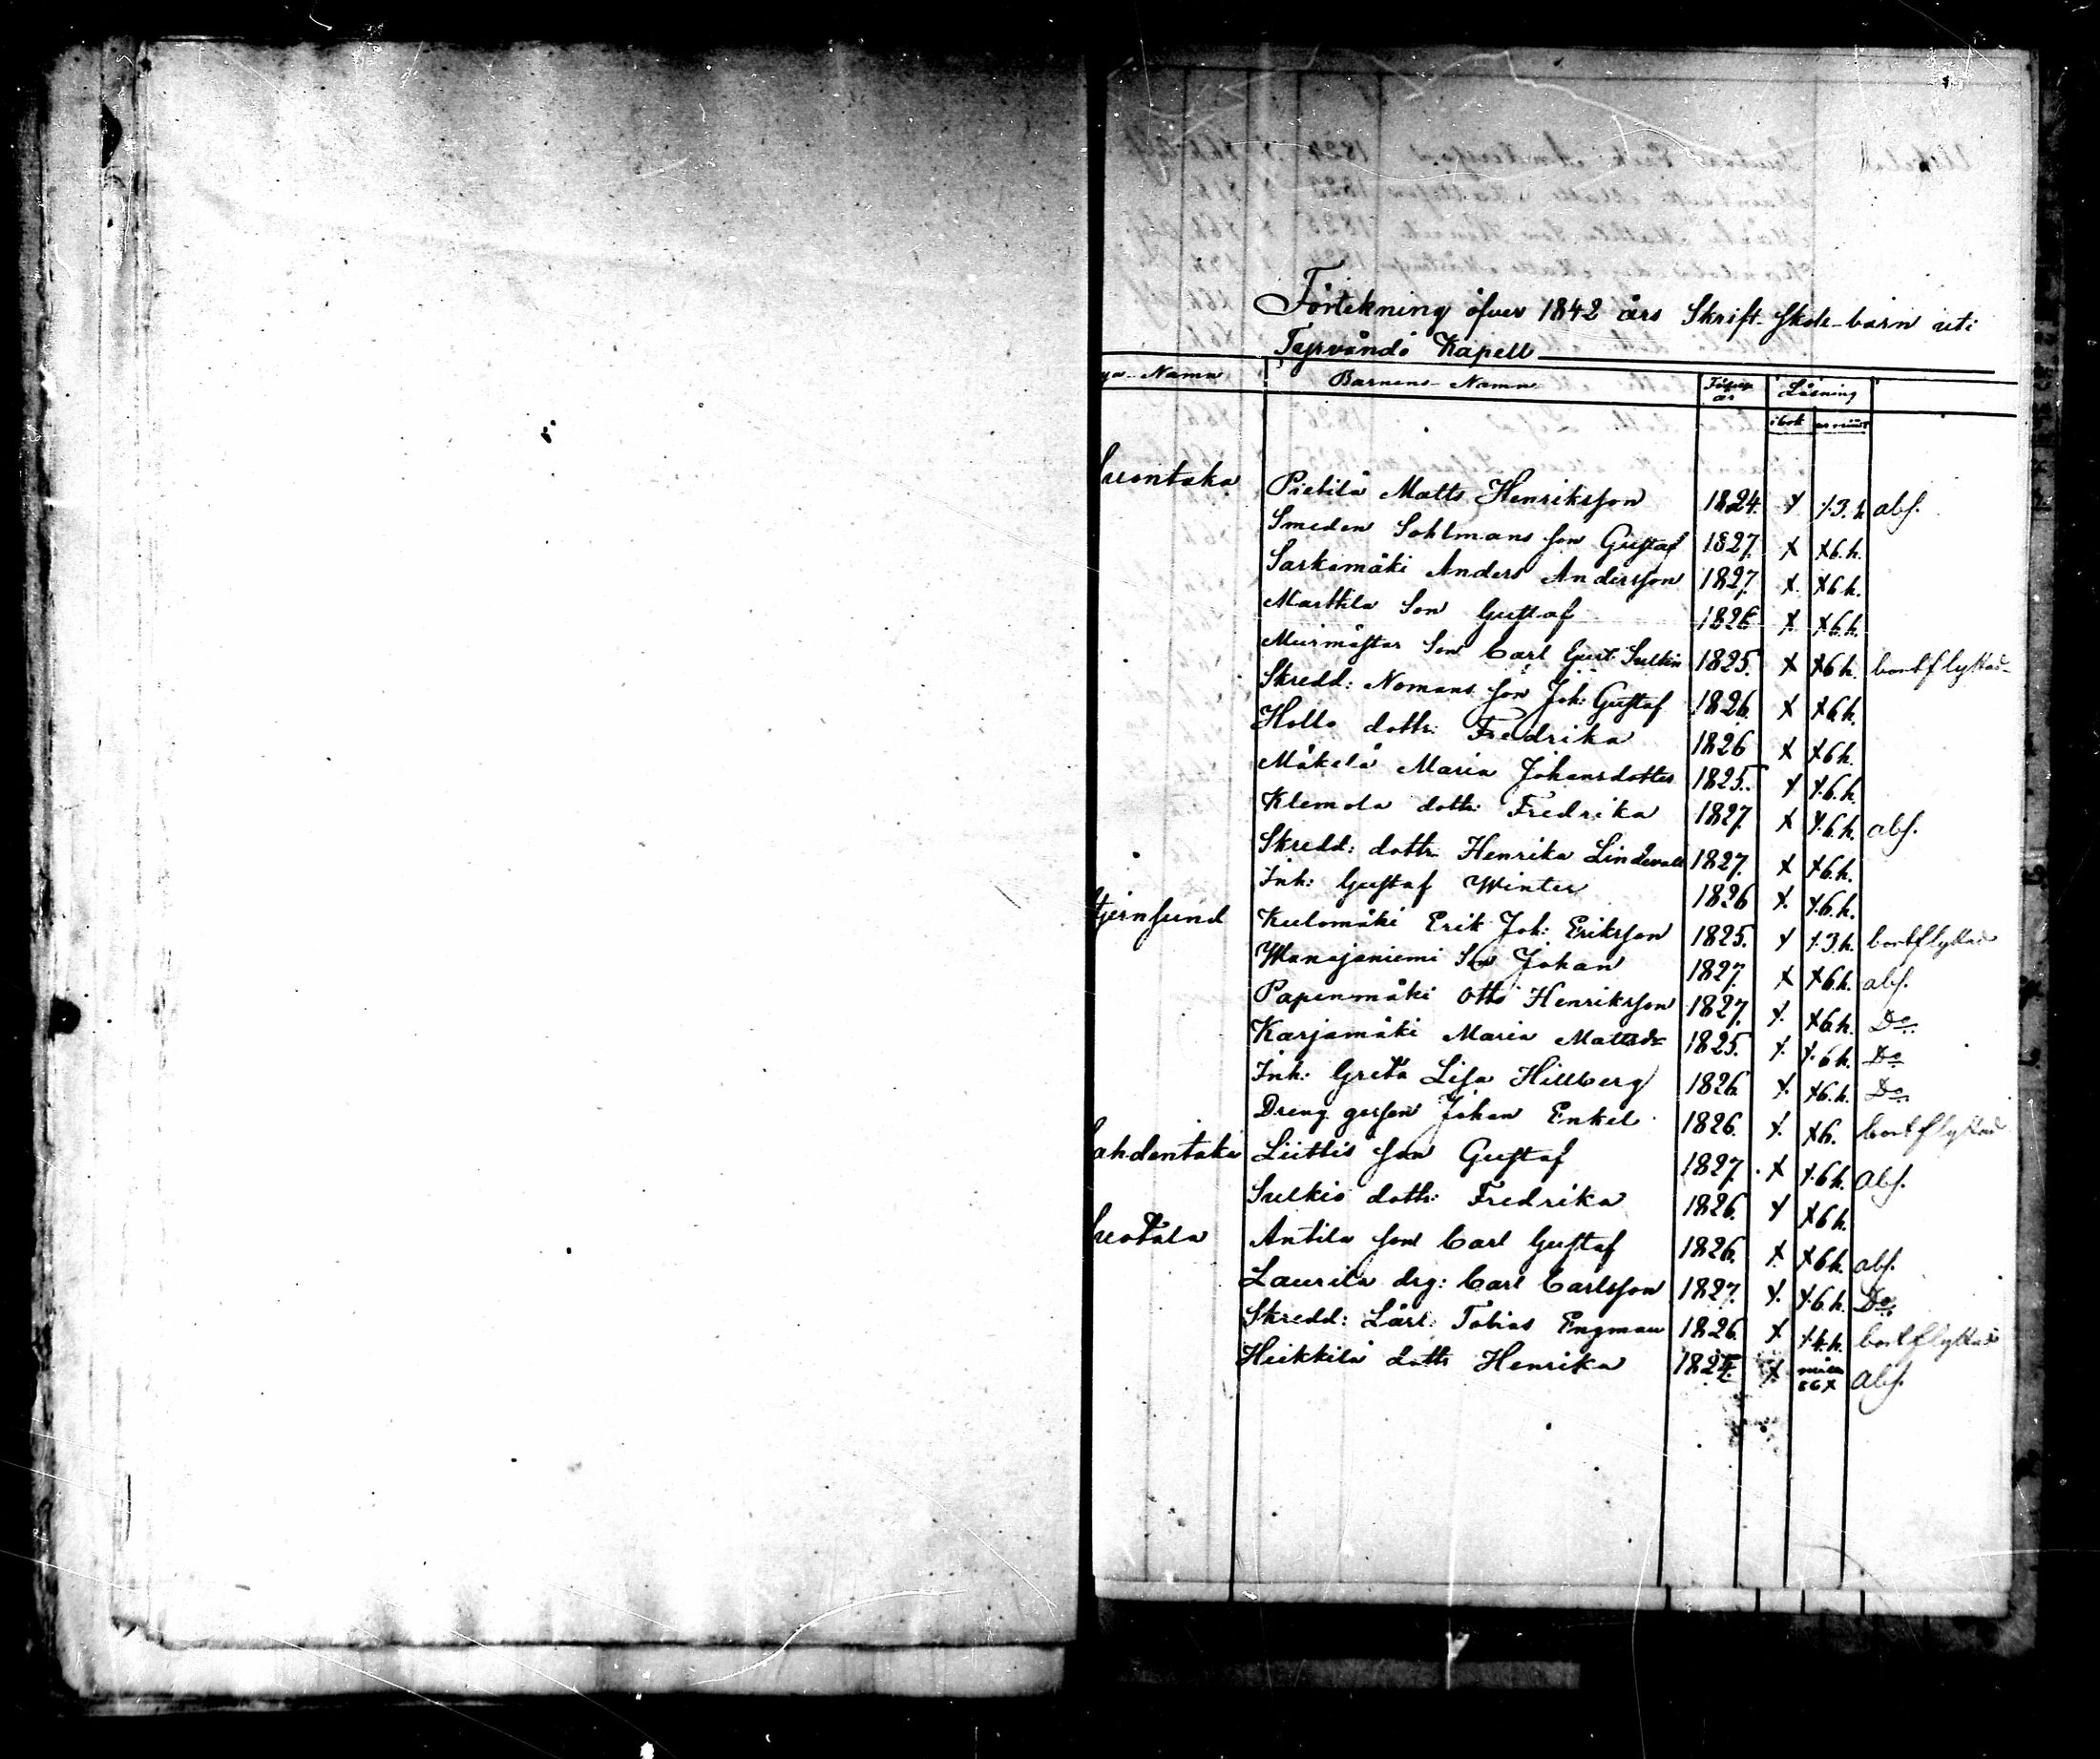 Förtekning öfver 1842 års Skrift-Skole-barn uti
Tyrvändö Kapell
ya-Namn Barnens-Namn Födelse år Läsning
i bok
uontaka Pietilä Matts Henriksson 1824. x x3.h abs.
Smeden Sohlmans son Gustaf 1827. x x6.h.
Sarkamäki Anders Andersson 1827. x. x6h.
Marttila Son Gustaf 1826 x. x6h.
Murmästar Son Carl Gust. Sulkin 1825. x x6h. bortflyttad
Skredd: Nomans son Joh: Gustaf 1826. x x6h.
Hollo dottr: Fredrika 1826 x x6h.
Mäkelä Maria Johansdotter 1825. x x.6.h.
Klemola dottr: Fredrika 1827. x x.6h. abs.
Skredd: dottr Henrika Lindevall 1827. x x6h.
Inh: Gustaf Winter 1826 x. x.6.h.
tjernsund Kulomäki Erik Joh: Eriksson 1825. x x3h. bortflyttad
Wanajaniemi Son Johan 1827. x x6h. abs.
Papenmäki Otto Henriksson 1827. x. x6h. Do.
Karjamäki Maria Mattsdr 1825. x. x.6h. Do
Inh: Greta Lisa Hillberg 1826 x. x6.h. Do.
Dreng gossen Johan Enkel 1826. x. x6. bortflyttad
ahdentaka Liuttis son Gustaf 1827. x x.6h. abs.
Sulkio dottr: Fredrika 1826. x x6h.
uotala Antila son Carl Gustaf 1826. x x6h. abs.
Laurila drg: Carl Carlsson 1827. x. x.6h. Do.
Skredd: Lärl: Tobias Engman 1826. x x4.h. bortflyttad
Heikkilä dottr Henrika 1824. x. abs.